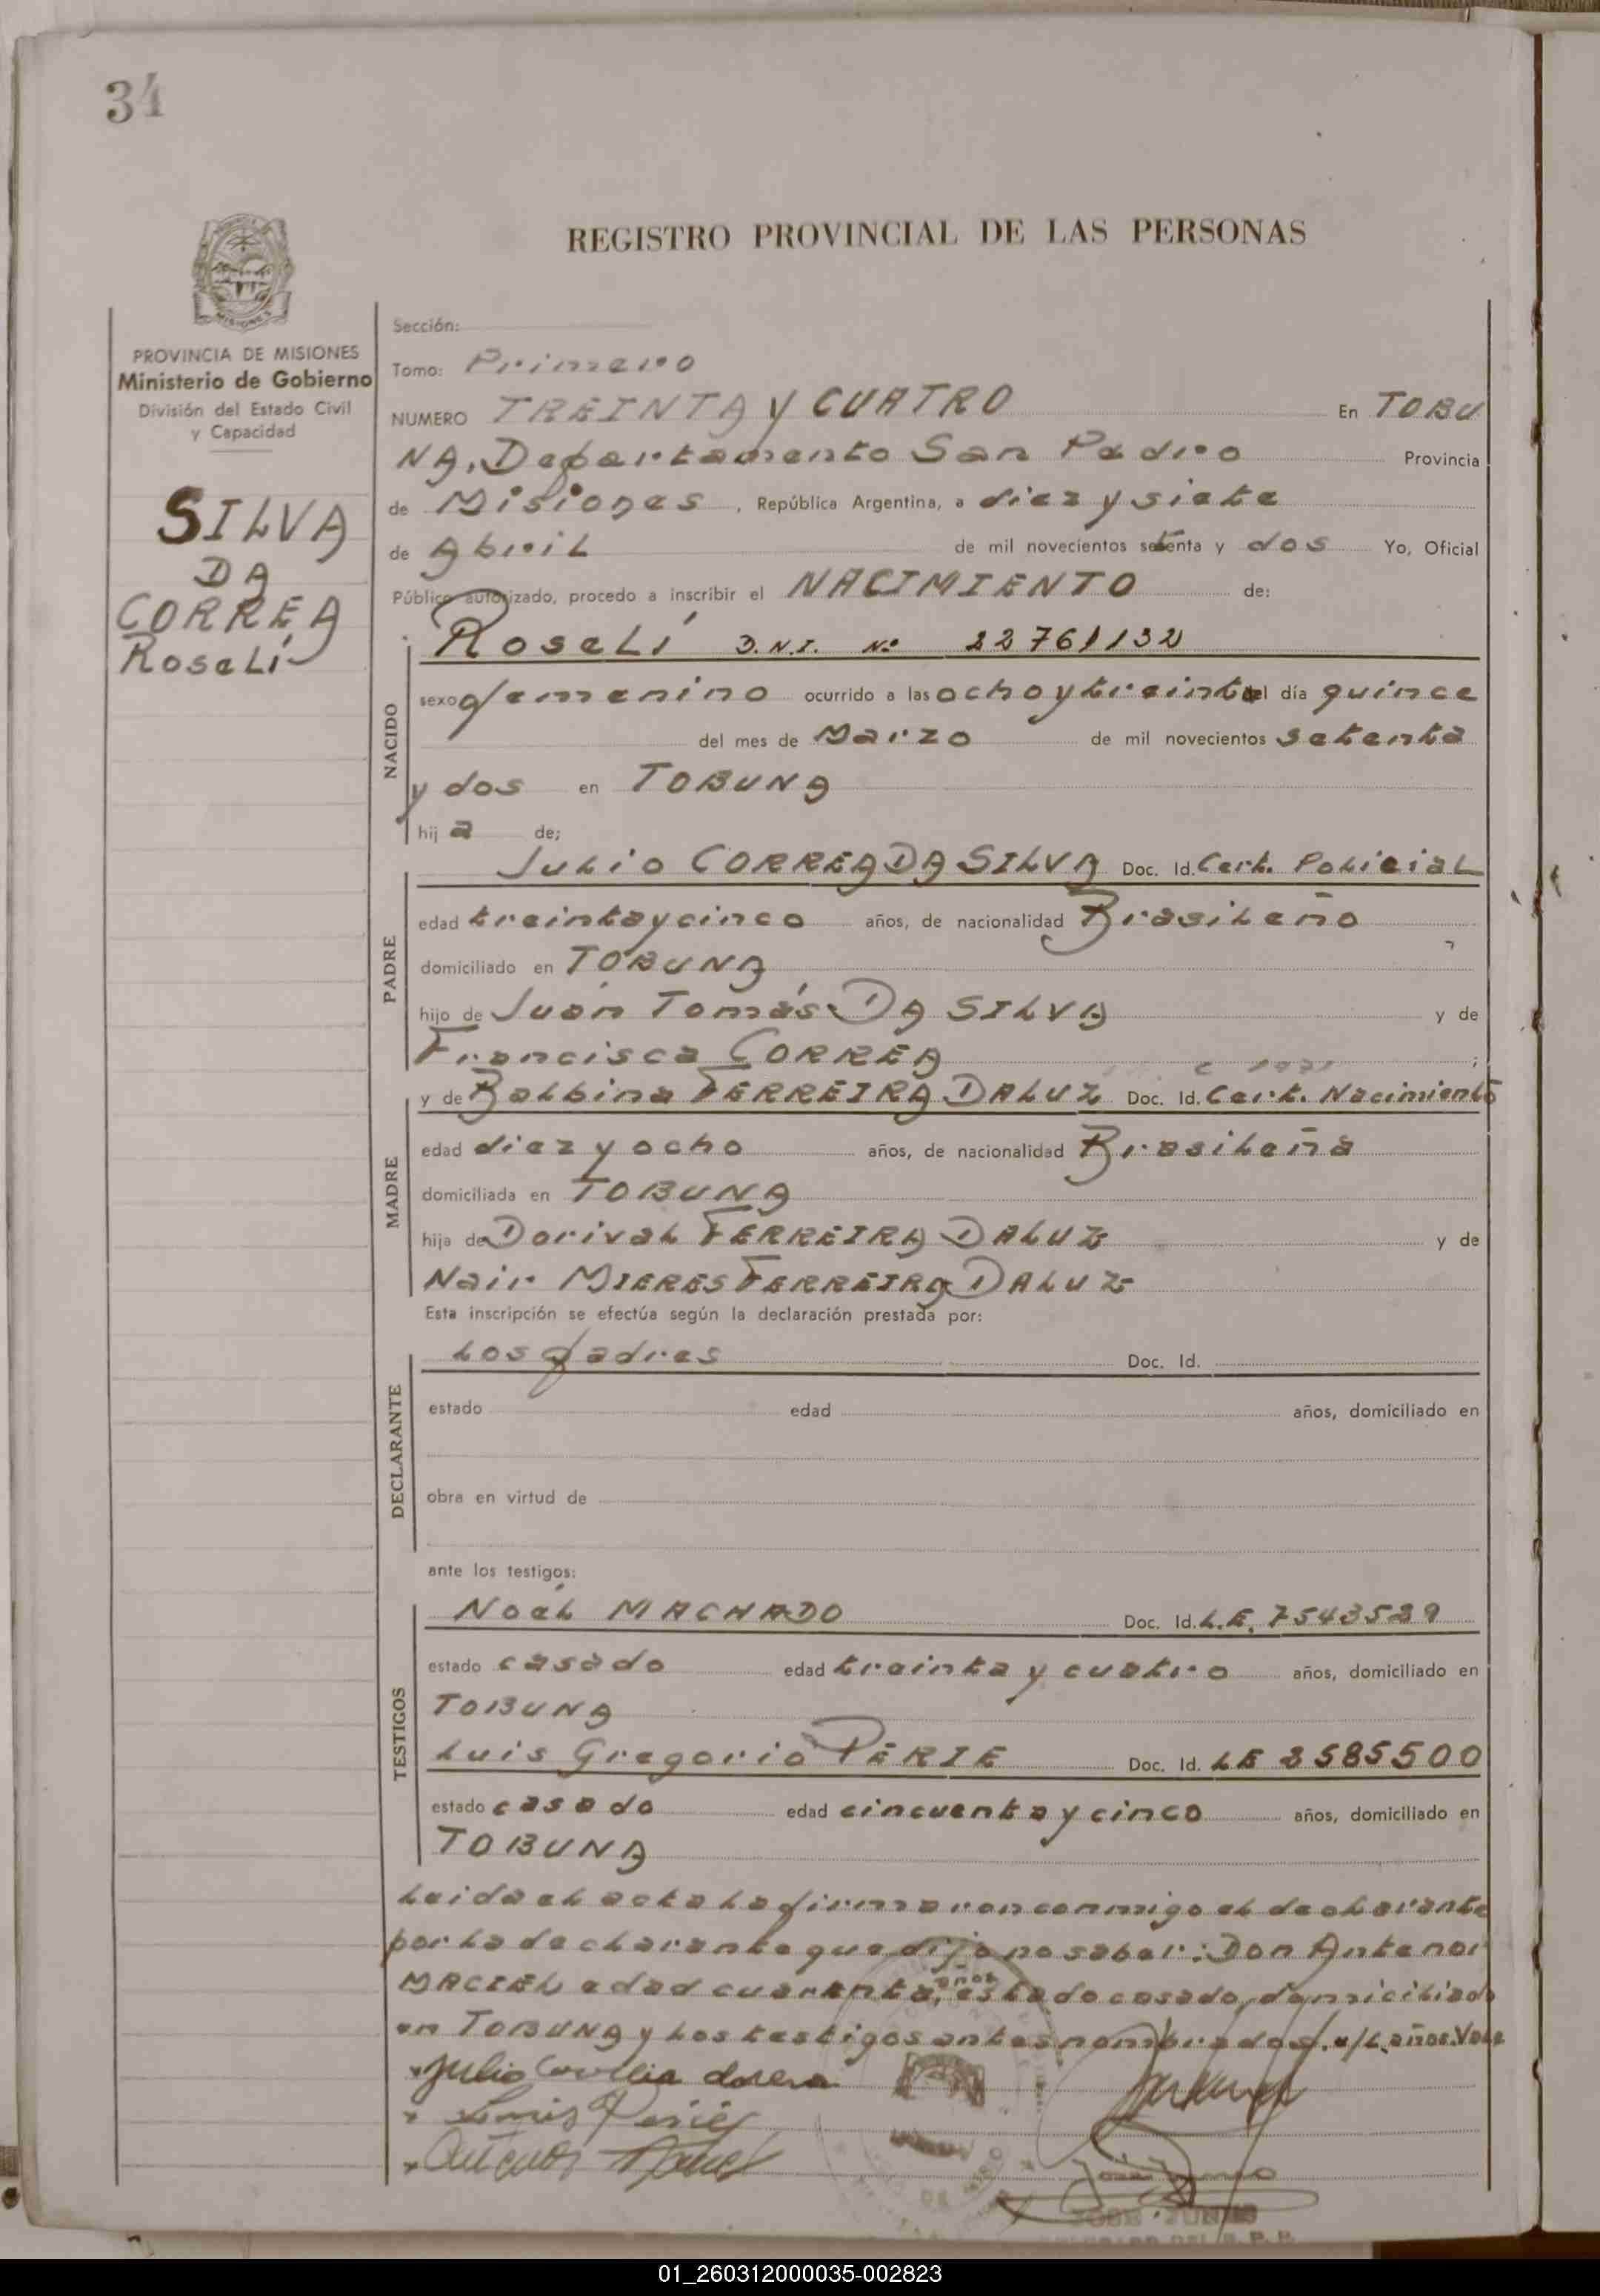 34
REGISTRO PROVINCIAL DE LAS PERSONAS
PROVINCIA DE MISIONES
Ministerio de Gobierno
División del Estado Civil
y Capacidad
SILVA
DA
CORREA
Roselí
Sección:
Tomo: Primero
NUMERO TREINTA y CUATRO En TOBU
NA, Departamento San Pedro Provincia
de Misiones, República Argentina, a diez y siete
de Abril de mil novecientos setenta y dos Yo, Oficial
Público autorizado, procedo a inscribir el NACIMIENTO de:
Roselí D.N.I. Nº 22761132
NACIDO
sexo femenino ocurrido a las ocho y treinta del día quince
del mes de Marzo de mil novecientos setenta
y dos en TOBUNA
hija de;
Julio CORREA DA SILVA Doc. Id. Cert. Policial
PADRE
edad treinta y cinco años, de nacionalidad Brasileño
domiciliado en TOBUNA
hijo de Juan Tomás DA SILVA y de
Francisca CORREA ;
y de Balbina FERREIRA DALUZ Doc. Id. Cert. Nacimiento
MADRE
edad diez y ocho años, de nacionalidad Brasileña
domiciliada en TOBUNA
hija de Dorival FERREIRA DALUZ y de
Nair MIERES FERREIRA DALUZ
Esta inscripción se efectúa según la declaración prestada por:
Los padres Doc. Id.
DECLARANTE
estado edad años, domiciliado en
obra en virtud de
ante los testigos:
Noél MACHADO Doc. Id. L.E. 7543529
TESTIGOS
estado casado edad treinta y cuatro años, domiciliado en
TOBUNA
Luis Gregorio PERIE Doc. Id. LE 2585500
estado casado edad cincuenta y cinco años, domiciliado en
TOBUNA
Leida el acta la firmaron conmigo el declarante
por la declarante que dijo no saber: Don Antenor
MACIEL edad cuarenta, años estado casado, domiciliado
en TOBUNA y los testigos antes nombrados. e/L. años. Vale
Julio
Luis Perié
Antenor
JOSE
01_260312000035-002823